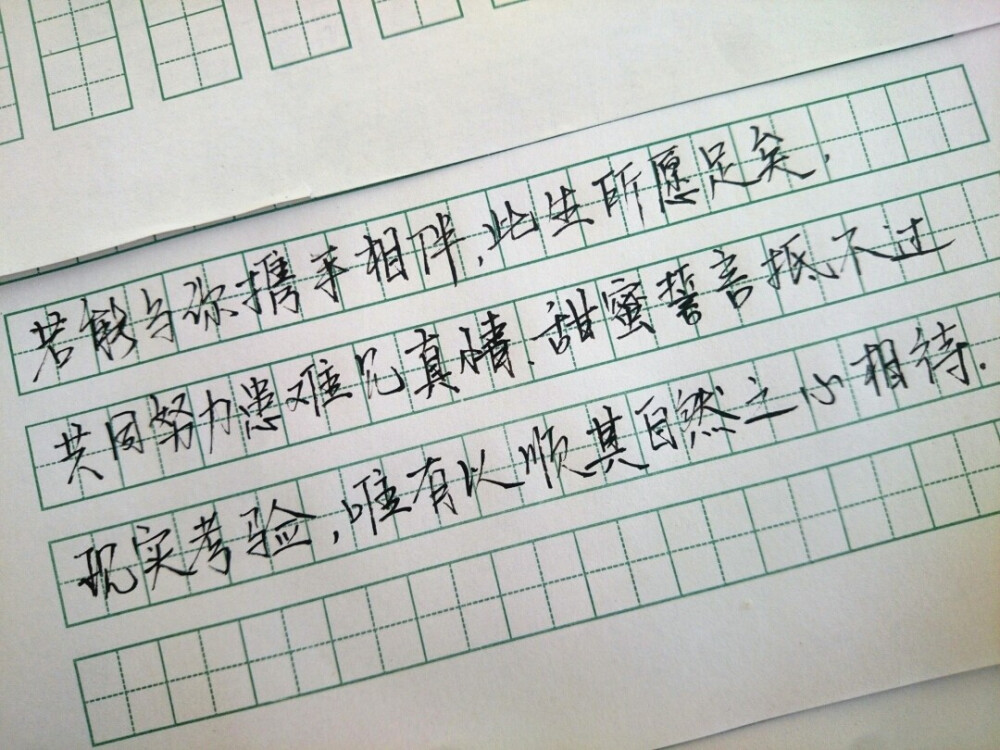 若能与你携手相伴,此生所愿足矣,
共同努力患难见真情、甜蜜誓言抵不过
现实考验,唯有以顺其自然之心相待.